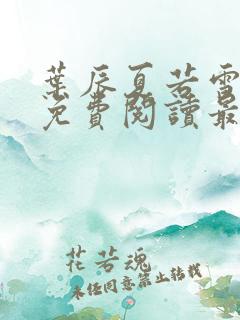 葉辰夏若雪
免費閱讀最
花若魂
未經同意禁止轉載